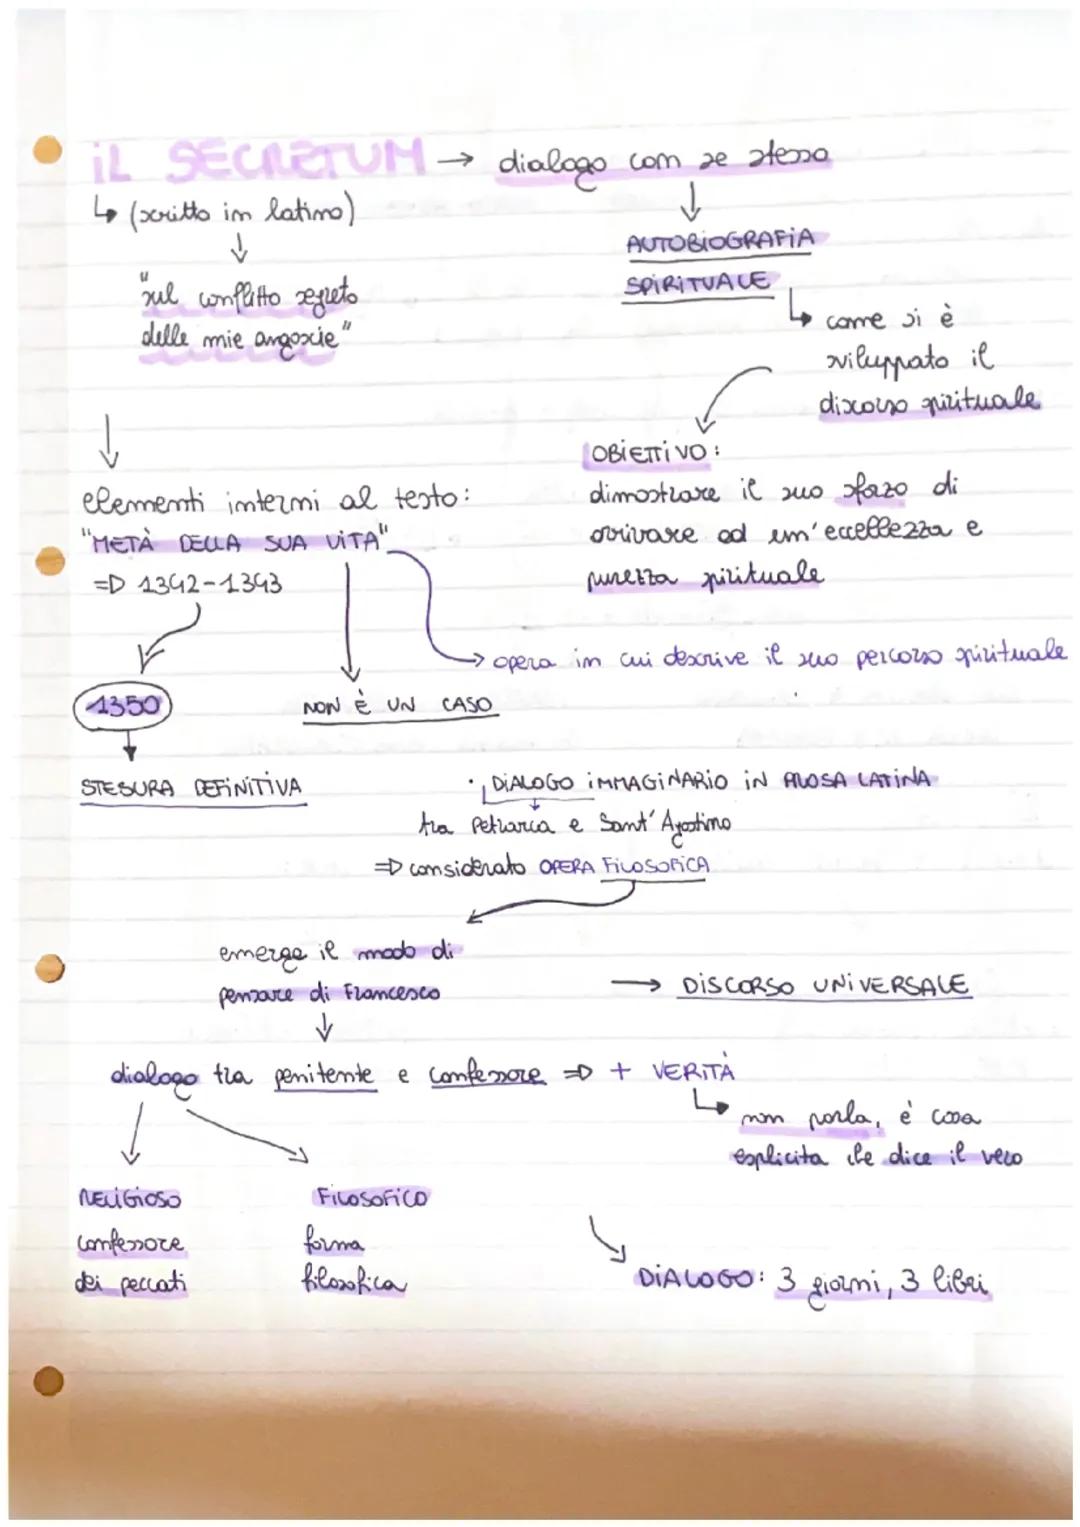 iL SECRETUM → dialogo con se stesso
↳ (scritto in latino)
AUTOBIOGRAFiA
SPiRiTUALE
"sul conflitto segreto
delle mie angoscie"
↳ come si è
sviluppato il
discorso spirituale
OBiETTiVO:
elementi interni al testo:
dimostrare il suo sforzo di
"METÀ DELLA SUA ViTA"
arrivare ad un'eccellezza e
=D 1342-1343
purezza spirituale
→ opera in cui descrive il suo percorso spirituale
1350
NON È UN CASO
STESURA DEFiNiTiVA
· DiALOGO iMMAGiNARiO iN PROSA LATiNA
tra Petrarca e Sant'Agostino
=D considerato OPERA FiLOSOFiCA
emerge il modo di
pensare di Francesco
→ DiSCORSO UNiVERSALE
dialogo tra penitente e confessore =D + VERiTÀ
↳ non parla, è cosa
esplicita che dice il vero
RELiGiOSO
FiLOSOFiCO
confessore
forma
dei peccati
filosofica
DiALOGO: 3 giorni, 3 libri